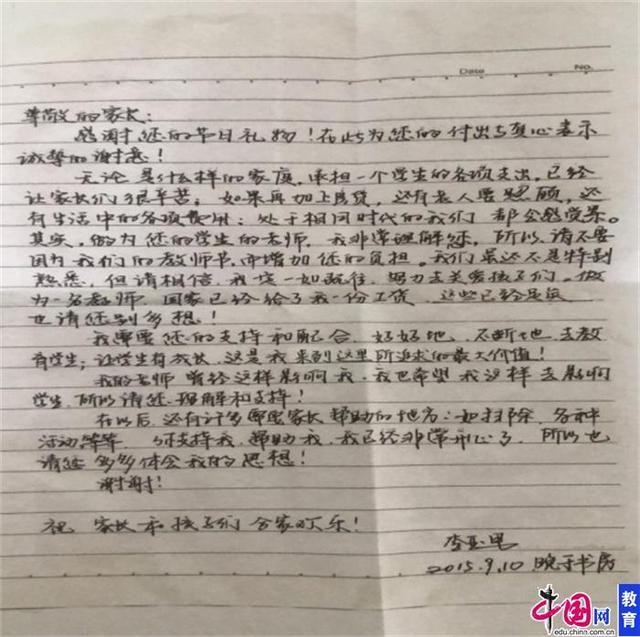 Date
No.
尊敬的家长：
感谢您的节日礼物！在此为您的付出与真心表示
诚挚的谢意！
无论是什么样的家庭，承担一个学生的各项支出，已经
让家长们很辛苦；如果再加上房贷，还有老人要照顾，还
有生活中的各项费用；处于相同时代的我们都会感觉累。
其实，做为您的学生的老师，我非常理解您，所以，请不要
因为我们的教师节而增加您的负担。我们虽还不是特别
熟悉，但请相信，我定一如既往，努力去关爱孩子们。做
为一名教师，国家已经给了我一份工资，这些已经足够
也请您别多想！
我需要您的支持和配合，好好地、不断地去教
育学生；让学生有成长，这是我来到这里所追求的最大价值！
我的老师曾经这样影响我，我也希望我这样去影响
学生，所以请您理解和支持！
在以后，还有许多需要家长帮助的地方：如扫除、各种
活动等等，支持我，帮助我，我已经非常开心了，所以也
请您多多体会我的思想！
谢谢！
祝 家长和孩子们合家欢乐！
李
2015.9.10 晚于书房
中国网
edu.china.com.cn
教育